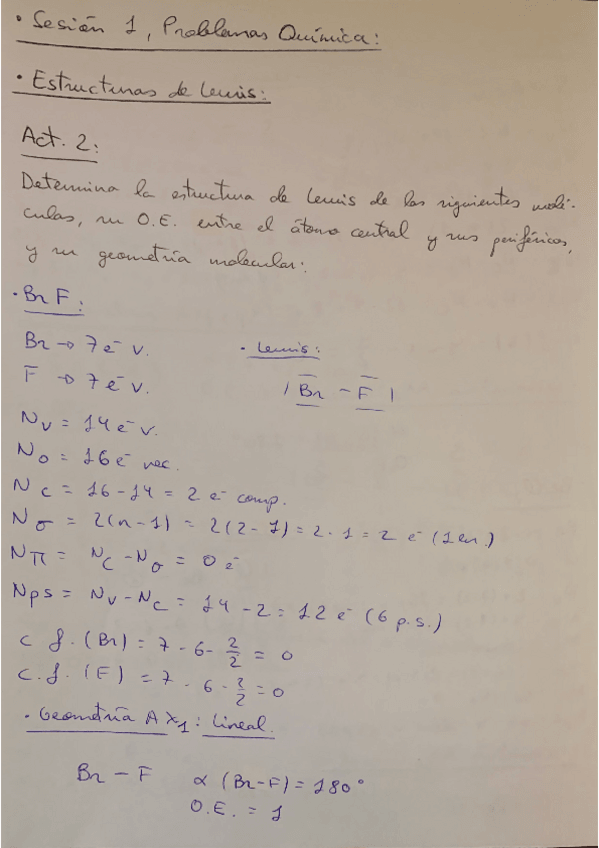 · Sesión 1, Problemas Química:
· Estructuras de Lewis:
Act. 2:
Determina la estructura de Lewis de las siguientes molé-
culas, su O.E. entre el átomo central y sus periféricos,
y su geometría molecular:
· Br F:
Br → 7 e⁻ v.
· Lewis:
F → 7 e⁻ v.
| Br - F |
Nv = 14 e⁻ v.
No = 16 e⁻ nec.
Nc = 16 - 14 = 2 e⁻ comp.
Nσ = 2(n-1) = 2(2-1) = 2 · 1 = 2 e⁻ (1 en.)
Nπ = Nc - Nσ = 0 e⁻
Nps = Nv - Nc = 14 - 2 = 12 e⁻ (6 p.s.)
c f. (Br) = 7 - 6 - 2/2 = 0
c.f. (F) = 7 - 6 - 2/2 = 0
· Geometría AX₁: Lineal.
Br - F α (Br-F) = 180°
O.E. = 1